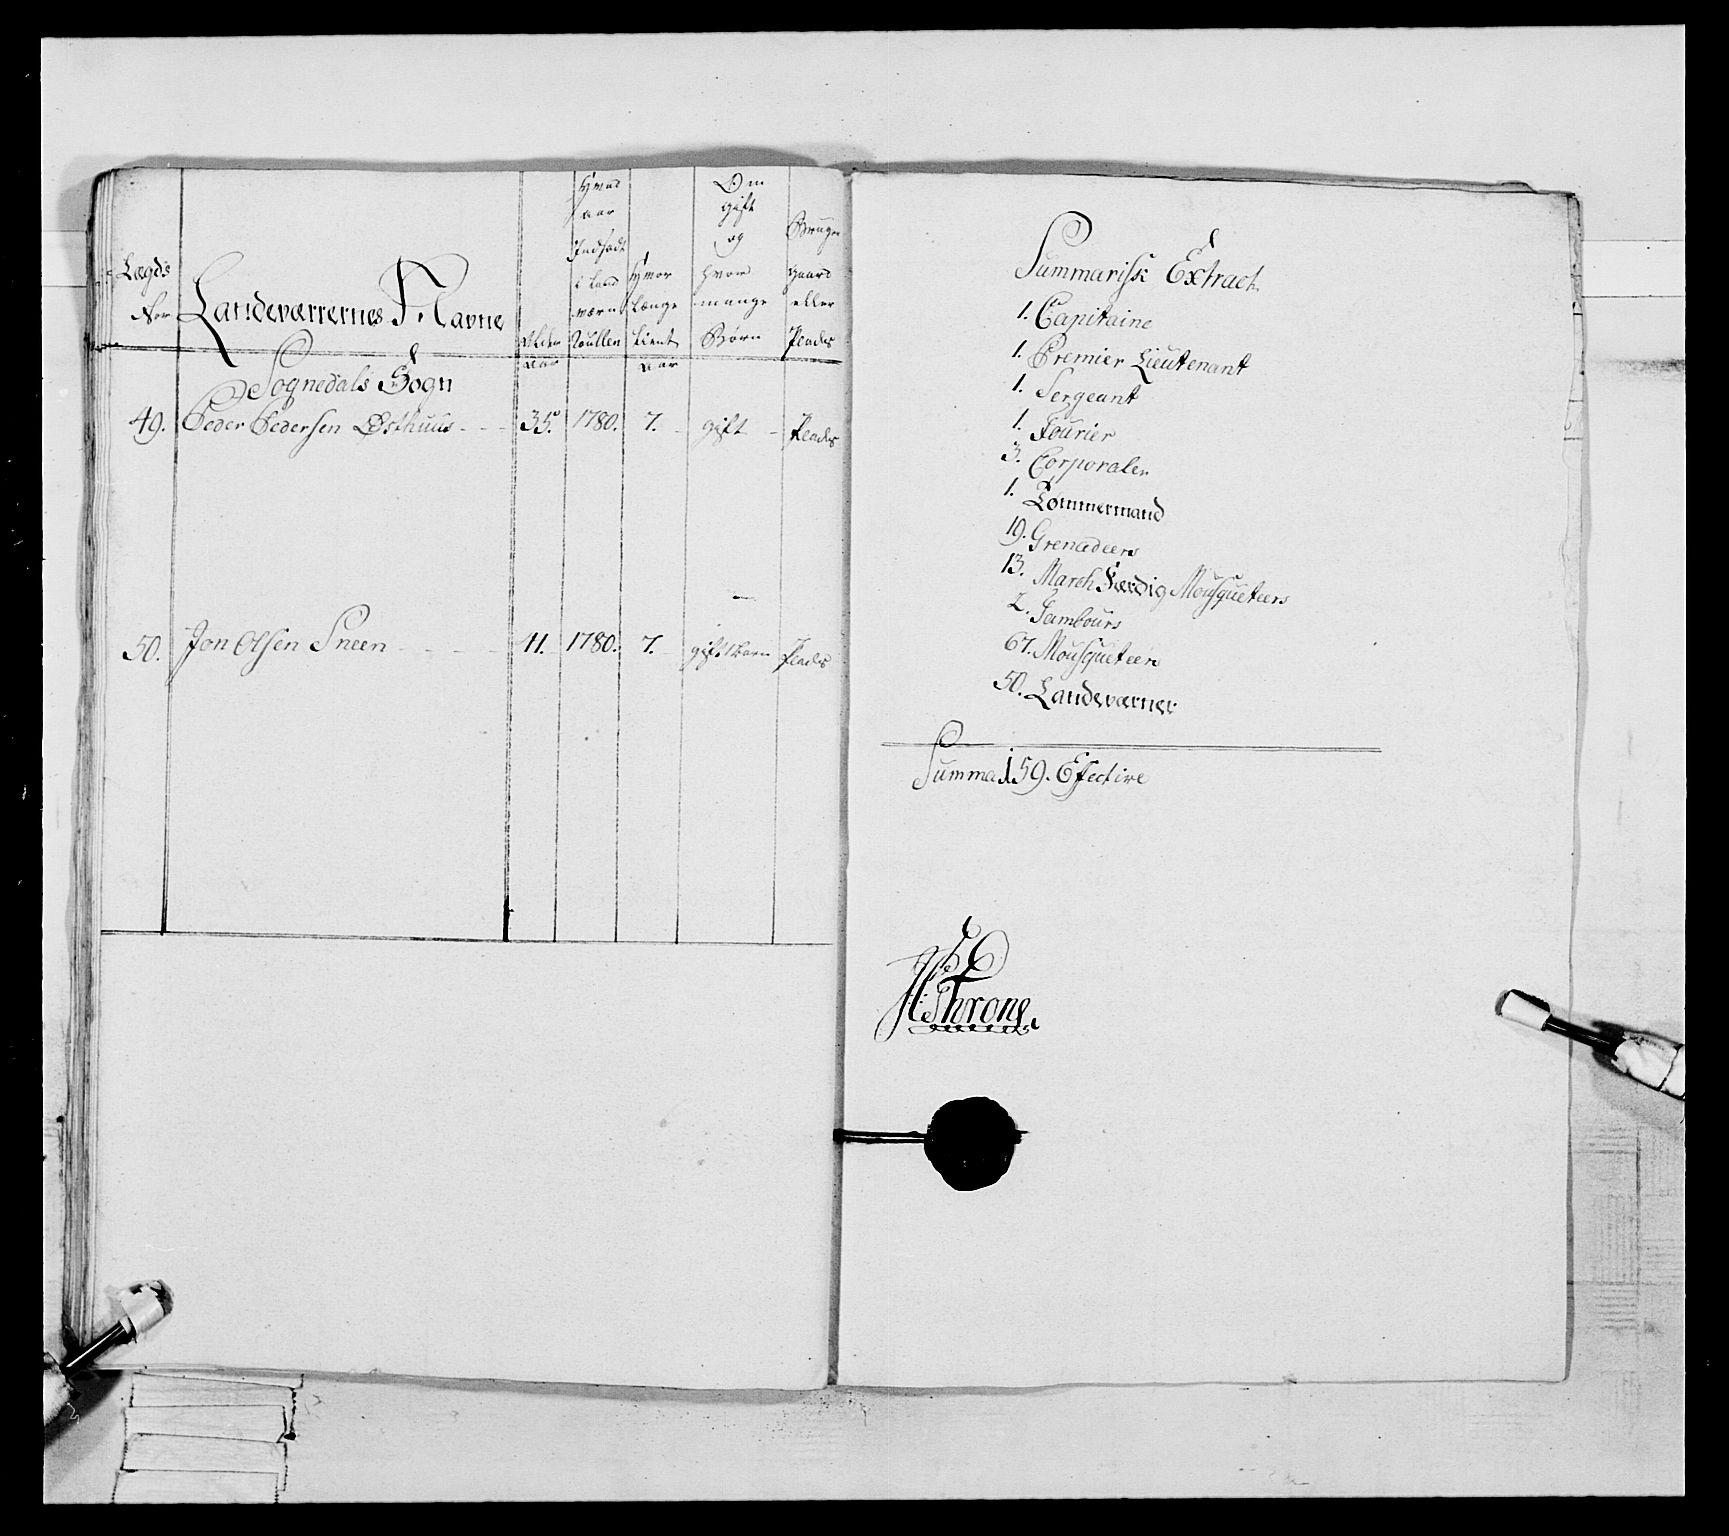 Lægds
No
Landeværrernes Navne
Alder
Aar
Hvad
Aar
Indsadt
i Land
værn
Roullen
Hvor
længe
tient
Aar
Om
gift
og
hvor
mange
Børn
Bruger
Gaard
eller
Plads
Sognedals Sogn
49. Peder Pedersen Østhuus 35. 1780. 7. gift Plads
50. Jon Olsen Sneen 41. 1780. 7. gift 1 Barn Plads
Summarisk Extract
1. Capitaine
1. Premier Lieutenant
1. Sergeant
1. Fourier
3. Corporaler
1. Tømmermand
19. Grenadeers
13. March Færdig Mousqueteers
2. Tambours
67. Mousqueteers
50. Landeværner
Summa 159. Efective
Throne